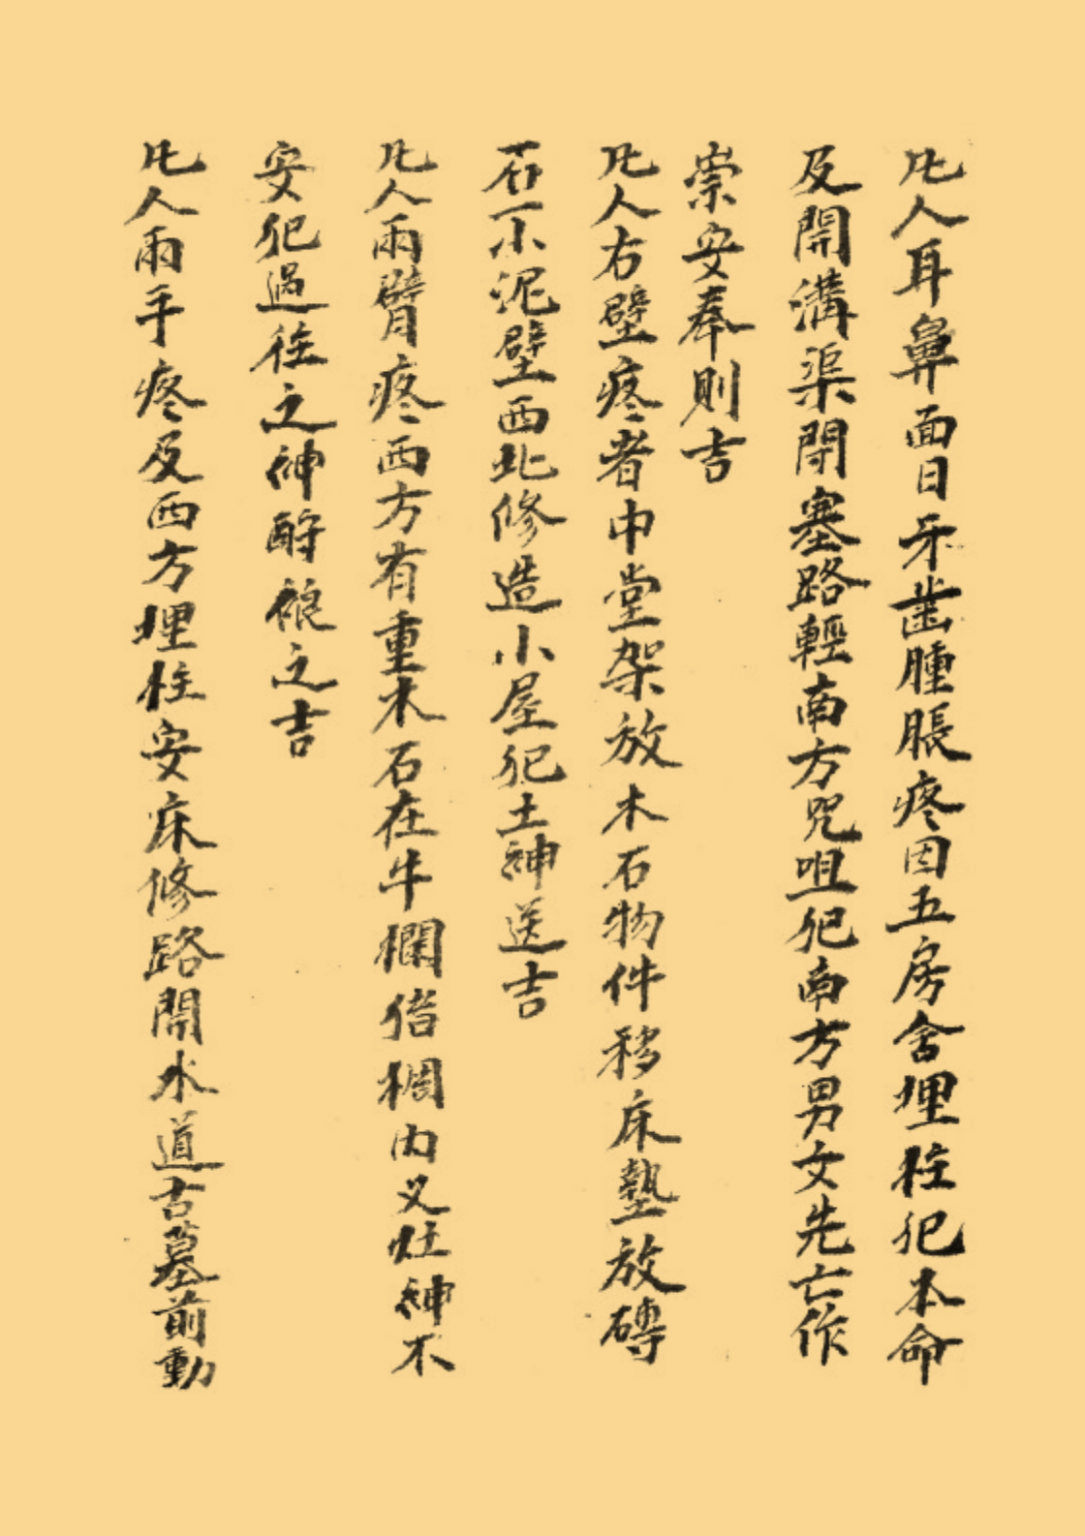 凡人耳鼻面日牙齒腫脹疼因五房舍埋柱犯本命
及開溝渠閉塞路輕南方咒咀犯南方男女先亡作
崇安奉則吉
凡人右壁疼者中堂架放木石物件移床墊放磚
石不泥壁西北修造小屋犯土神送吉
凡人兩臂疼西方有重木石在牛欄猪椆內又灶神不
安犯過往之神酧禳之吉
凡人兩手疼及西方埋柱安床修路開水道古墓前動